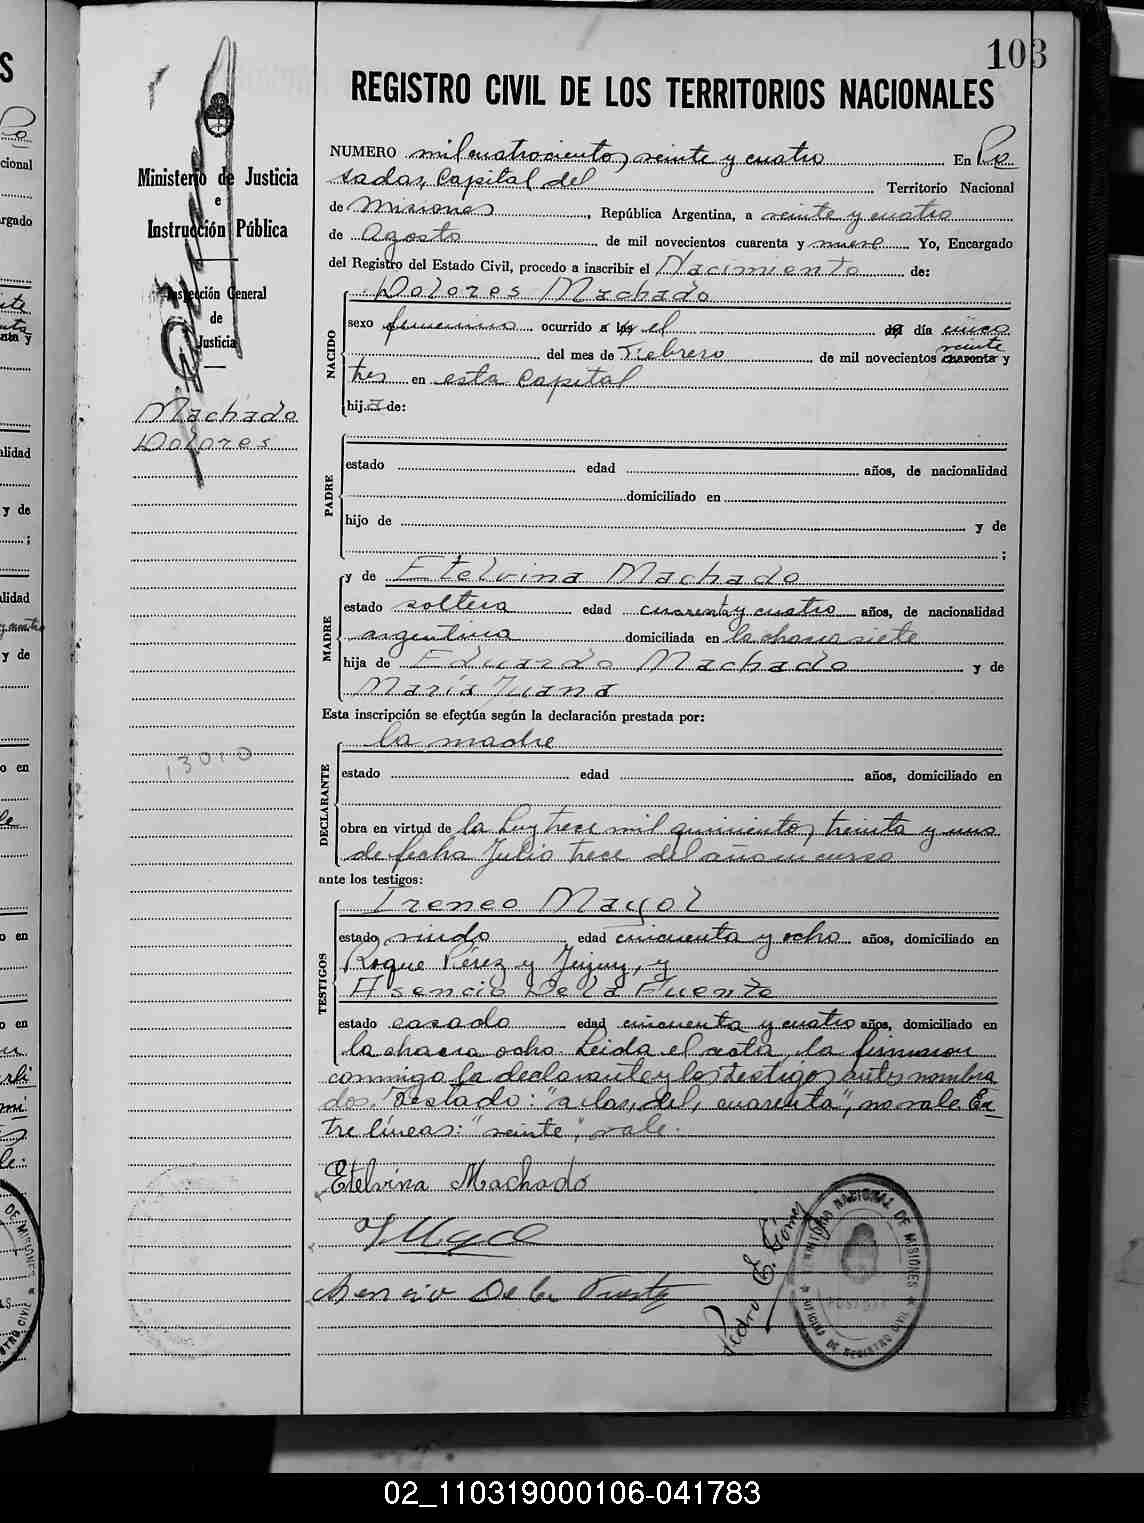 103
REGISTRO CIVIL DE LOS TERRITORIOS NACIONALES
Ministerio de Justicia
e
Instrucción Pública
Inspección General
de
Justicia
Machado
Dolores
13010
NUMERO mil cuatrocientos veinte y cuatro En Po
sadas, Capital del Territorio Nacional
de Misiones, República Argentina, a veinte y cuatro
de Agosto de mil novecientos cuarenta y nueve Yo, Encargado
del Registro del Estado Civil, procedo a inscribir el Nacimiento de:
NACIDO
Dolores Machado
sexo femenino ocurrido a las el del día cinco
veinte
del mes de Febrero de mil novecientos cuarenta y
tres en esta Capital
hija de:
PADRE
estado edad años, de nacionalidad
domiciliado en
hijo de y de
;
MADRE
y de Etelvina Machado
estado soltera edad cuarenta y cuatro años, de nacionalidad
argentina domiciliada en la chacra siete
hija de Eduardo Machado y de
María Juana
Esta inscripción se efectúa según la declaración prestada por:
DECLARANTE
la madre
estado edad años, domiciliado en
obra en virtud de la Ley trece mil quinientos treinta y uno
de fecha Julio trece del año en curso
ante los testigos:
TESTIGOS
Ireneo Mayol
estado viudo edad cincuenta y ocho años, domiciliado en
Roque Pérez y Jujuy, y
Asencio De la Fuente
estado casado edad cincuenta y cuatro años, domiciliado en
la chacra ocho Leida el acta, la firmaron
conmigo la declarante y los testigos antes nombra
dos. Testado: "a las, del, cuarenta", no vale. En
tre líneas: "veinte", vale.
Etelvina Machado
Asencio De la Fuente
Pedro E. Gómez
TERRITORIO NACIONAL DE MISIONES
OFICINA DE REGISTRO CIVIL
POSADAS
02_110319000106-041783